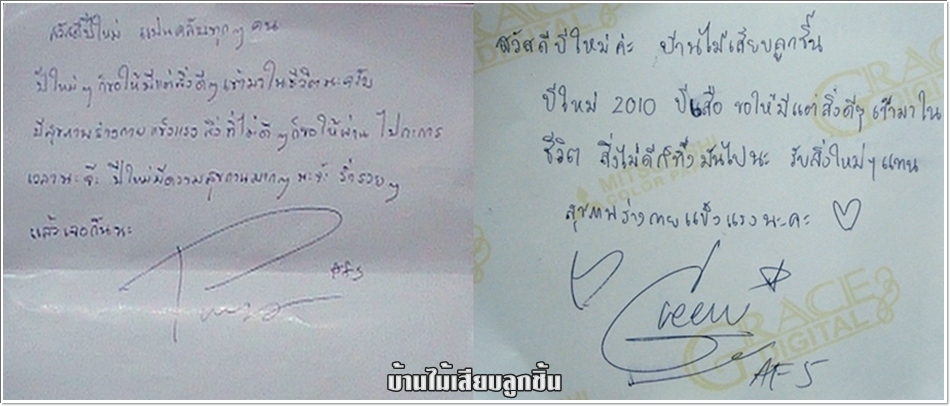 สวัสดีปีใหม่ แฟนคลับทุกๆ คน
ปีใหม่ๆ ก็ขอให้มีแต่สิ่งดีๆ เข้ามาในชีวิตนะครับ
มีสุขภาพร่างกายแข็งแรง สิ่งที่ไม่ดีๆ ก็ขอให้ผ่านไปกะการ
เวลานะจ๊ะ ปีใหม่มีความสุขมากๆ นะจ๊ะ ร่ำรวยๆ
แล้วเจอกันนะ
AF5
สวัสดีปีใหม่ค่ะ บ้านไม้เสียบลูกชิ้น
ปีใหม่ 2010 ปีเสือ ขอให้มีแต่สิ่งดีๆ เข้ามาใน
ชีวิต สิ่งไม่ดีก็ทิ้งมันไปนะ รับสิ่งใหม่ๆ แทน
สุขภาพร่างกายแข็งแรงนะคะ
Green
AF5
GRACE
DIGITAL
MITSUBISHI
COLOR PAPER
GRACE
DIGITAL
บ้านไม้เสียบลูกชิ้น